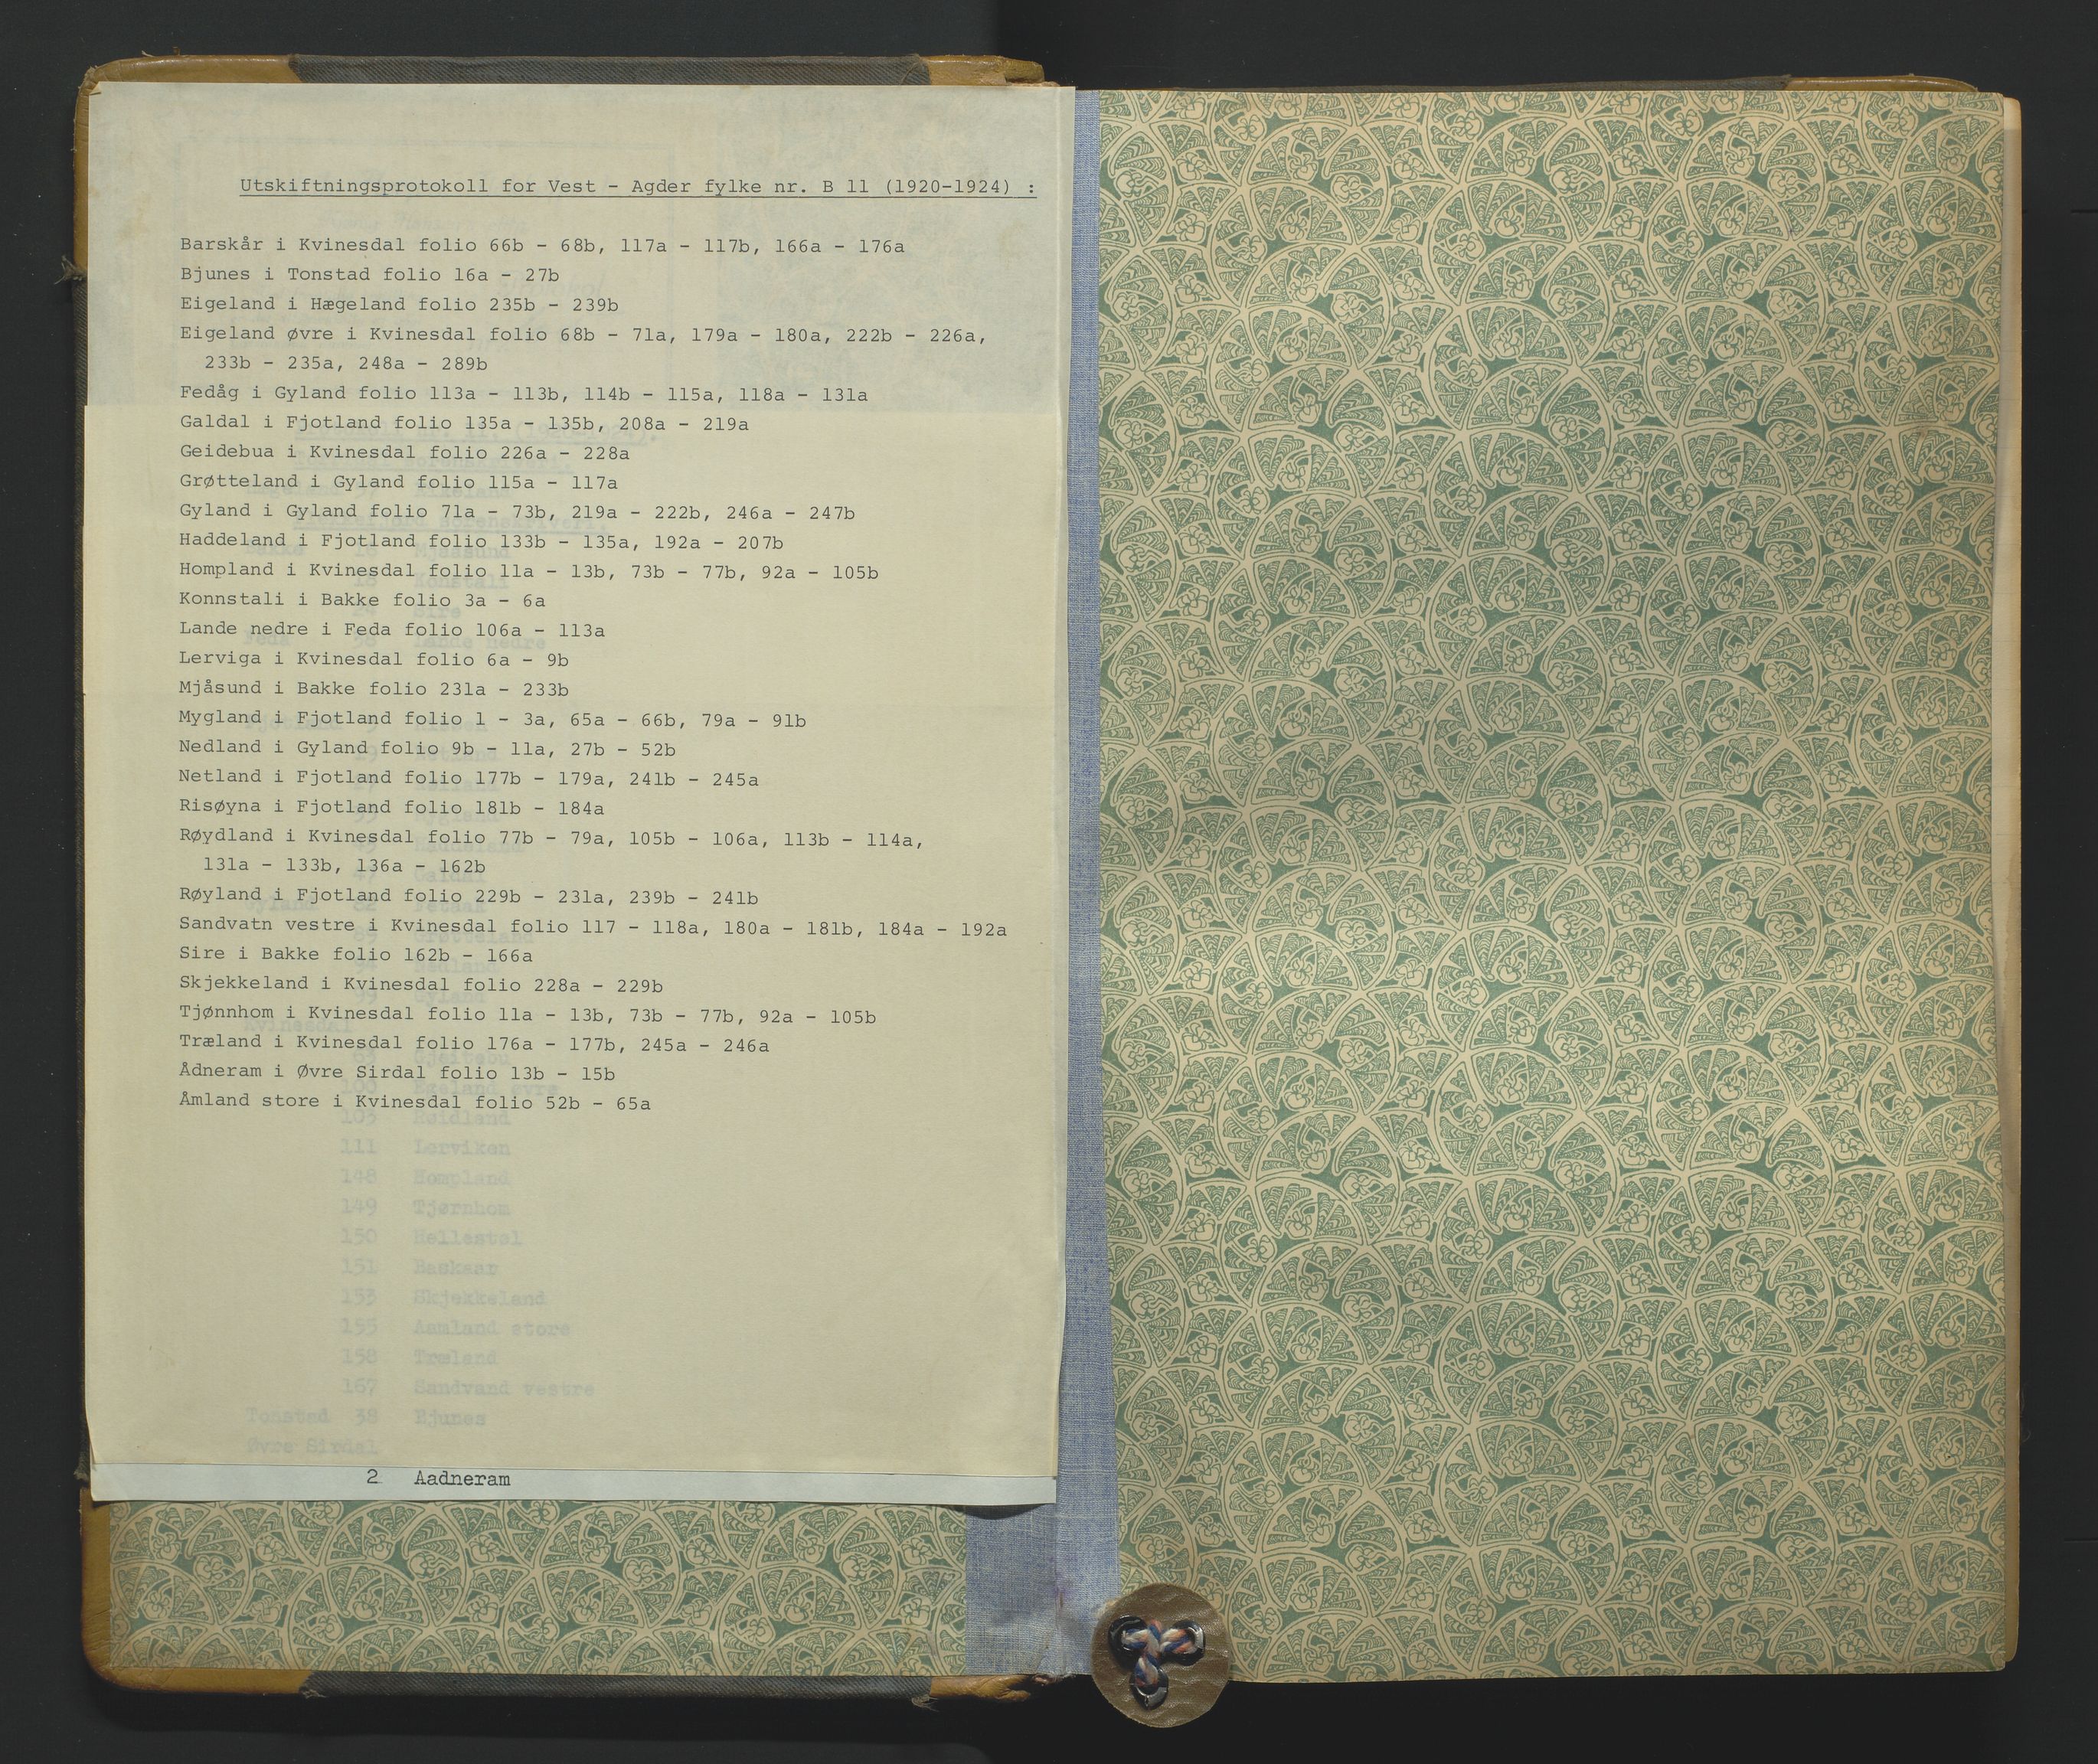 Utskiftningsprotokoll for Vest - Agder fylke nr. B 11 (1920-1924) :
Barskår i Kvinesdal folio 66b - 68b, 117a - 117b, 166a - 176a
Bjunes i Tonstad folio 16a - 27b
Eigeland i Hægeland folio 235b - 239b
Eigeland øvre i Kvinesdal folio 68b - 71a, 179a - 180a, 222b - 226a,
233b - 235a, 248a - 289b
Fedåg i Gyland folio 113a - 113b, 114b - 115a, 118a - 131a
Galdal i Fjotland folio 135a - 135b, 208a - 219a
Geidebua i Kvinesdal folio 226a - 228a
Grøtteland i Gyland folio 115a - 117a
Gyland i Gyland folio 71a - 73b, 219a - 222b, 246a - 247b
Haddeland i Fjotland folio 133b - 135a, 192a - 207b
Hompland i Kvinesdal folio 11a - 13b, 73b - 77b, 92a - 105b
Konnstali i Bakke folio 3a - 6a
Lande nedre i Feda folio 106a - 113a
Lerviga i Kvinesdal folio 6a - 9b
Mjåsund i Bakke folio 231a - 233b
Mygland i Fjotland folio 1 - 3a, 65a - 66b, 79a - 91b
Nedland i Gyland folio 9b - 11a, 27b - 52b
Netland i Fjotland folio 177b - 179a, 241b - 245a
Risøyna i Fjotland folio 181b - 184a
Røydland i Kvinesdal folio 77b - 79a, 105b - 106a, 113b - 114a,
131a - 133b, 136a - 162b
Røyland i Fjotland folio 229b - 231a, 239b - 241b
Sandvatn vestre i Kvinesdal folio 117 - 118a, 180a - 181b, 184a - 192a
Sire i Bakke folio 162b - 166a
Skjekkeland i Kvinesdal folio 228a - 229b
Tjønnhom i Kvinesdal folio 11a - 13b, 73b - 77b, 92a - 105b
Træland i Kvinesdal folio 176a - 177b, 245a - 246a
Ådneram i Øvre Sirdal folio 13b - 15b
Åmland store i Kvinesdal folio 52b - 65a
111 Lerviken
148 Hompland
149 Tjørnhom
150 Hellestøl
151 Baskaar
153 Skjekkeland
155 Aamland store
158 Træland
167 Sandvand vestre
Tonstad 38 Bjunes
Øvre Sirdal
2 Aadneram